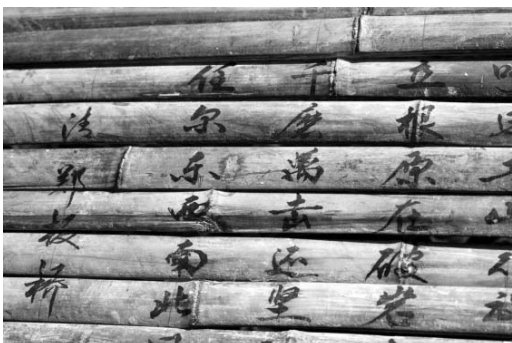 立根原在破岩
千磨萬击还坚
任尔东西南北
清 郑板桥